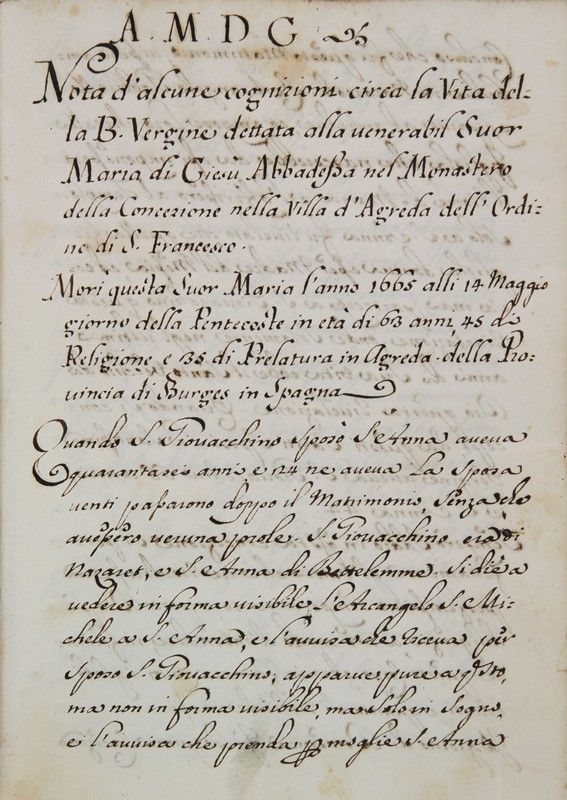 A. M. D. G
Nota d'alcune cognizioni circa la Vita del-
la B. Vergine dettata alla venerabil Suor
Maria di Giesù Abbadessa nel Monastero
della Concezione nella Villa d'Agreda dell' Ordi-
ne di S. Francesco.
Morì questa Suor Maria l'anno 1665 alli 14 Maggio
giorno della Pentecoste in età di 63 anni, 45 di
Religione e 35 di Prelatura in Agreda della Pro-
vincia di Burges in Spagna
Quando S. Giovacchino sposò S. Anna aveva
quarantasei anni e 24 ne aveva la sposa
venti passarono doppo il Matrimonio, senza che
avessero veruna prole. S. Giovacchino era di
Nazaret, e S. Anna di Bettelemme. Si diè a
vedere in forma visibile l'Arcangelo S. Mi-
chele a S. Anna, e l'avvisa che riceva per
sposo S. Giovacchino; apparve pure a qsto,
ma non in forma visibile, ma solo in sogno,
e l'avvisa che prenda p moglie S. Anna